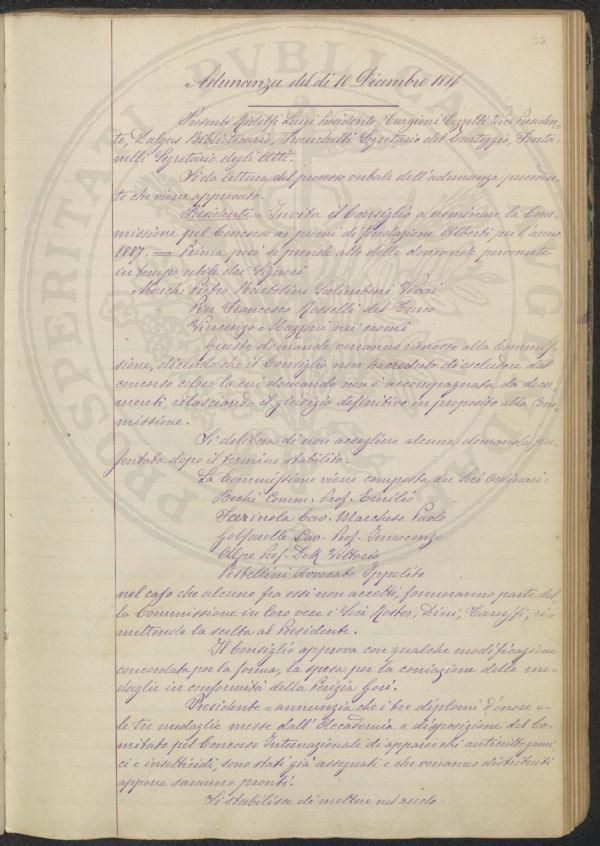 Adunanza del dì 10 Dicembre 188
Presenti Ridolfi Luigi Presidente, Targioni Tozzetti Vice Presiden=
te, Dalgas Bibliotecario, Franchetti Segretario del Carteggio, Fonta
nelli Segretario degli Atti.
Si da lettura del processo verbale dell'adunanza preceden
te che viene approvato.
Presidente = Invita il Consiglio a nominare la Com
missione pel Concorso ai premi di fondazione Alberti per l'anno
1887. = Prima però si prende atto delle domande pervenute
in tempo utile dai Signori
March. Pietro Bartolini Salimbeni Vivai
Pier Francesco Rosselli del Turco
Vincenzo Mazzoni nei nomi
Queste domande verranno rimesse alla Commis
sione, dicendo che il Consiglio non ha creduto di escludere dal
concorso coloro la cui domanda non è accompagnata da docu
menti, rilasciando il giudizio definitivo in proposito alla Com
missione.
Si delibera di non accogliere alcuna domanda pre
sentata dopo il termine stabilito.
La Commissione viene composta dei Soci Ordinari:
Bechi Comm. Prof. Emilio
Farinola Cav. Marchese Paolo
Golfarelli Cav. Prof. Innocenzo
Alpe Prof. Dott. Vittorio
Pestellini Avvocato Ippolito
nel caso che alcuno fra essi non accetti, formeranno parte del
la Commissione in loro vece i Soci Roster, Dini, Caruso, ri
mettendo la scelta al Presidente.
Il Consiglio approva con qualche modificazione
concordata per la forma, la spesa per la coniazione delle me
daglie in conformità della Perizia Gori.
Presidente = annunzia che i tre diplomi d'onore e
le tre medaglie messe dall'Accademia a disposizione del Co=
mitato pel Concorso Internazionale di apparecchi anticrittogami
ci e insetticidi, sono stati già assegnati e che verranno distribuiti
appena saranno pronti.
Si stabilisce di mettere nel ruolo
PROSPERITATI PVBLICAE AVGENDAE